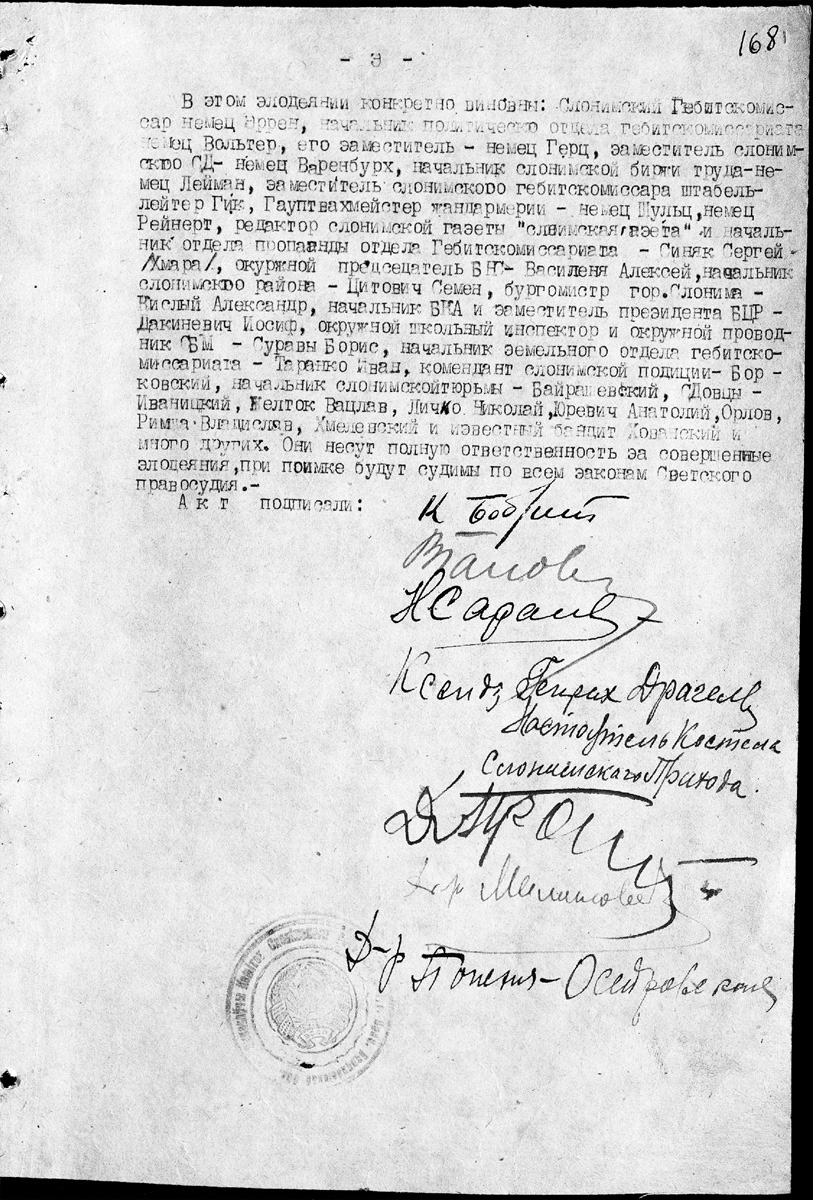 168
- Э -
В этом элодеянии конкретно виновны: Слонимский Гебитскомис-
сар немец Эррен, начальник политическю отдела гебитскомиссариата
немец Вольтер, его эаместитель - немец Герц, эаместитель слоним-
скюю СД- немец Варенбурх, начальник слонимской биржи труда-не-
мец Лейман, эаместитель слонимского гебитскомиссара штабель-
лейтер Гик, Гауптвахмейстер жандармерии - немец Шульц,немец
Рейнерт, редактор слонимской газеты "слнимская газета" и началь-
ник отдела пропаанды отдела Гебитскомиссариата - Синяк Сергей
/Хмара/, окружной председатель БНС- Василеня Алексей,начальник
слонимскою района - Цитович Семен, бургомистр гор.Слонима -
Кислый Александр, начальник БКА и заместитель президента БЦР -
Дакиневич Иосиф, окружной школьный инспектор и окружной провод-
ник СБМ - Суравы Борис, начальник земельного отдела гебитско-
миссариата - Таранко Иван, комендант слонимской подиции- Бор -
ковский, начальник слонимскойтюрьмы - Байрашевский, СДовцы -
Иваницкий, Желток Вацлав, Личко Николай,Юревич Анатолий,Орлов,
Римша Владислав, Хмелевский и известный бандит Хованский и
много других. Они несут полную ответственность эа совершенные
элодеяния,при поимке будут судимы по всем эаконам Светского
правосудия.-
Акт подписали:
Ксендз Генрих
Настоятель Костела
Слонимского Прихода.
Д-р